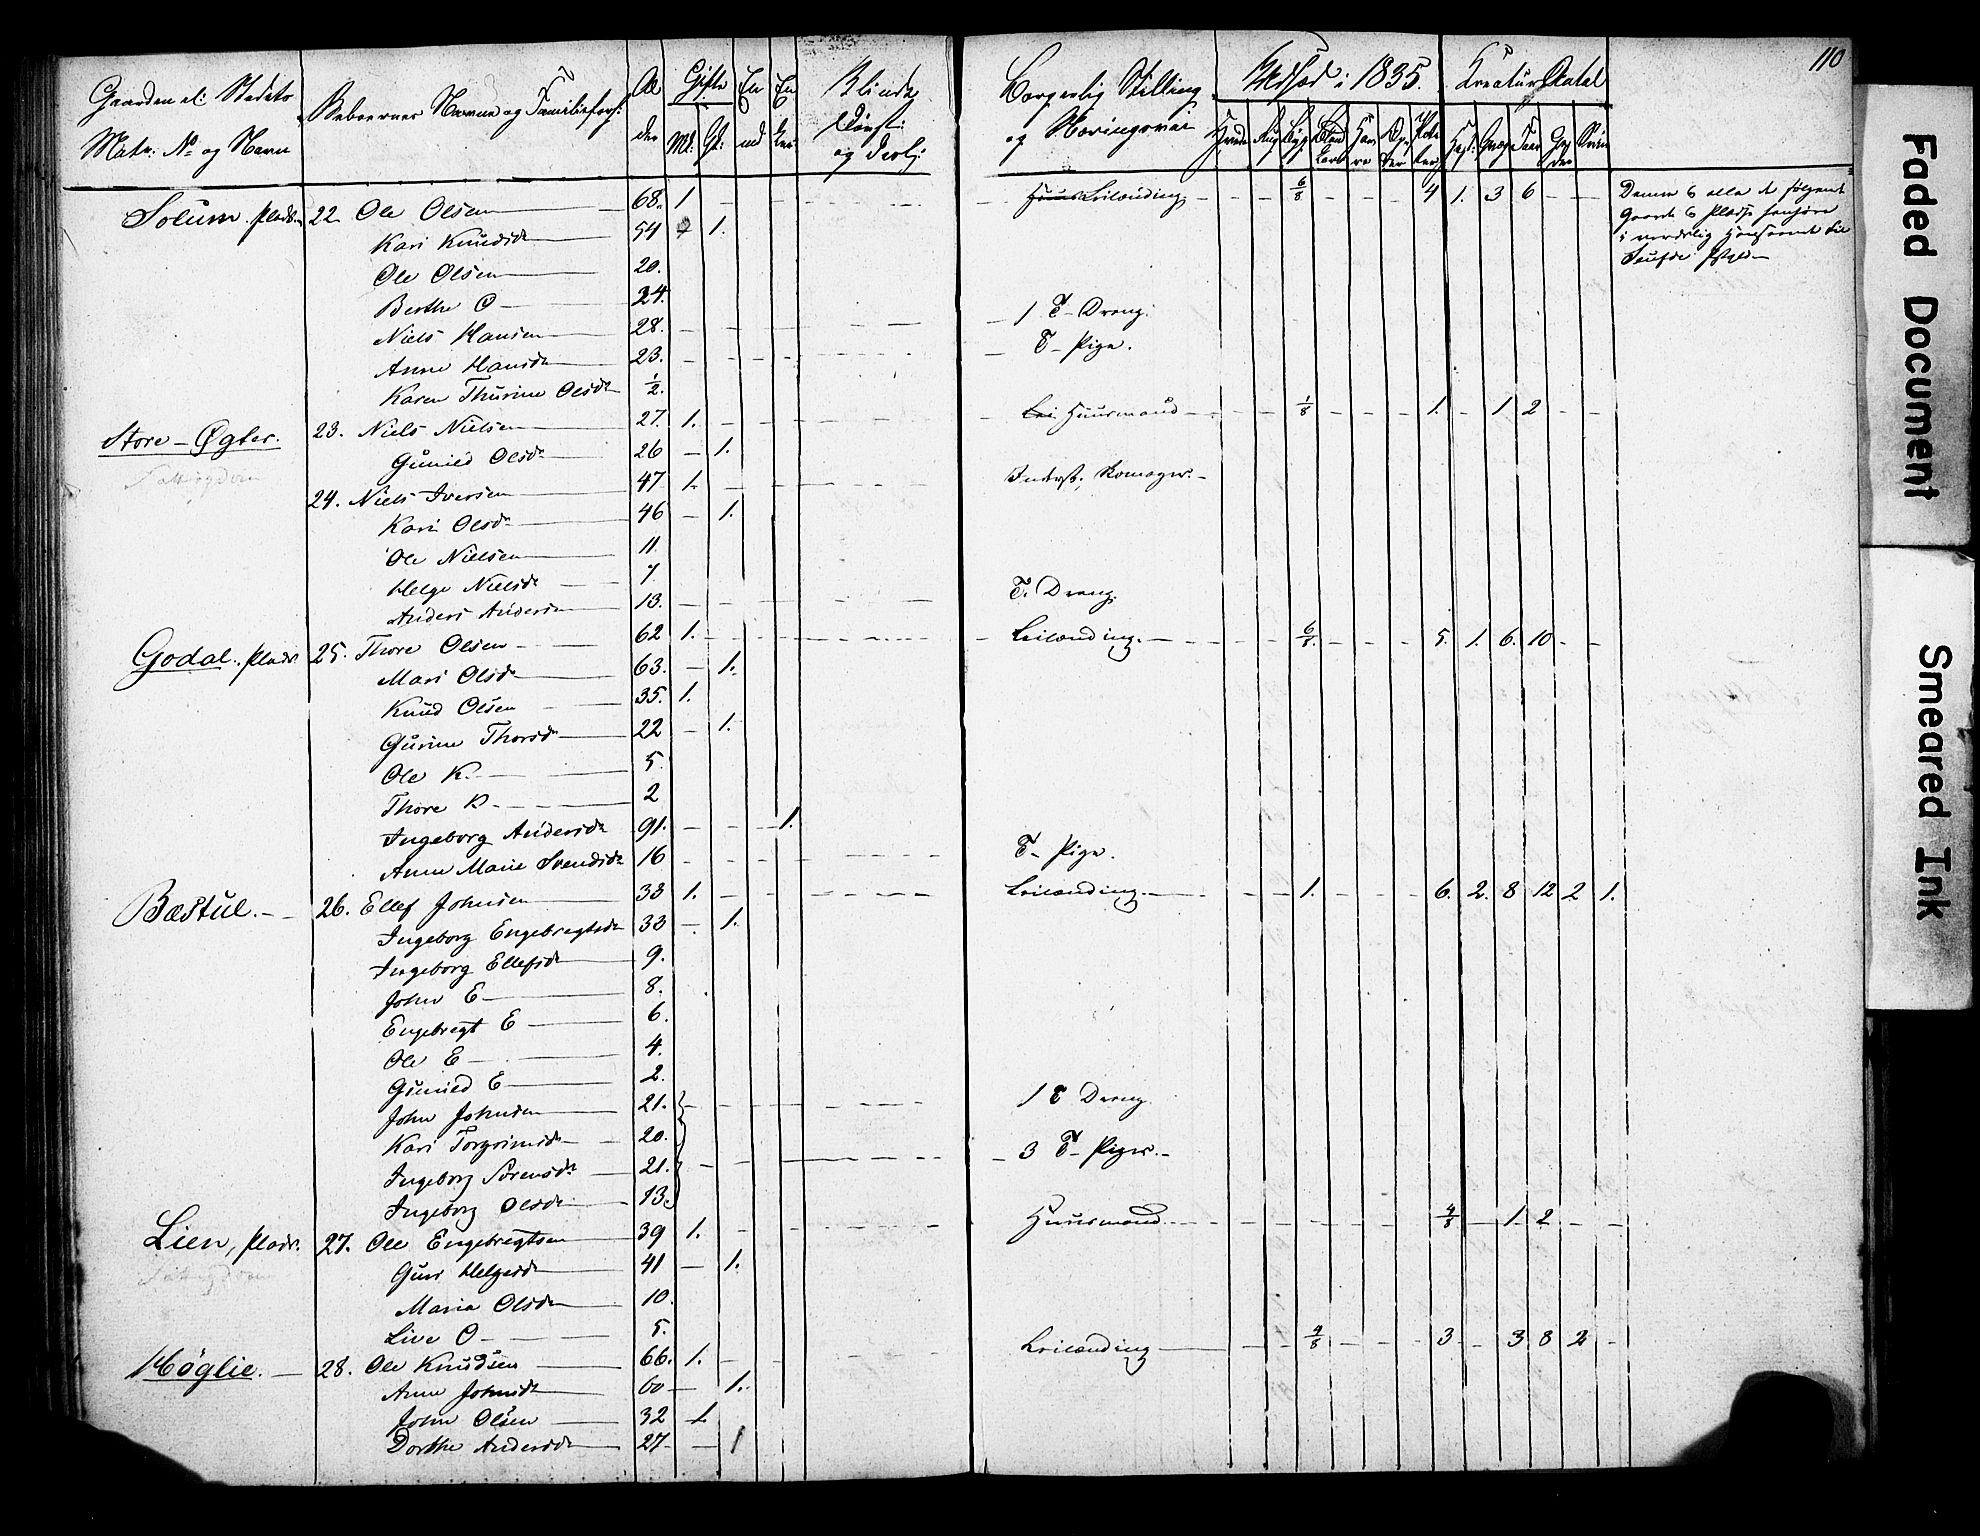 110
Gaardens el: Stedets Matr: No og Navn | Beboernes Navne og Familieforh: | Alder | Gifte Md: Gd: | En | Enker | Blinde Døvst: og | Borgerlig Stilling og Næringsvei | Udsæd i 1835. Hvede Rug Byg Bland Korn Havre Erter Poteter | Kreatur Antal Heste Qvæg Faar Geder Sviin
Solum. plads. 22 Ole Olsen 68. 1 Leilænding 6/8 4 1. 3 6 Denne & alle de følgende
Kari Knudsd 54 1. Gaarde & Pladse henhøre
Ole Olsen 20. i verdslig Henseende til
Berthe O 24.
Niels Hansen 28. 1 T- Dreng.
Anne Hansd 23. T- Pige.
Karen Thurine Olsd 1/2.
Store - Øgter. 23. Niels Nielsen 27. 1. Huusmand 1/8 1. 1 2
Gunild Olsd 26 1.
24. Niels Iversen 47 1. Inderst,
Kari Olsd 46 1.
Ole Nielsen 11.
Helge Nielsd 7
Anders Anders 13. T. Dreng
Godal. plads. 25. Thore Olsen 62 1. Leilænding. 6/8. 5. 1. 6. 10
Mari Olsd 63. 1.
Knud Olsen 35. 1.
Gurine Thorsd 22 1.
Ole K. 5.
Thore K 2
Ingeborg Andersd 91. 1.
Anne Marie Svendsd 16 T- Pige.
Bæstul. 26. Ellef Johnsen 33 1. Leilænding. 1. 6. 2. 8 12 2 1.
Ingeborg Engebregtsd 33 1.
Ingeborg Ellefsd 9.
John E 8.
Engebregt E 6.
Ole E 4.
Gunild E 2.
John Johnsen 21. 1 T Dreng
Kari Torgrimsd 20.
Ingeborg Sørensd 21. 3 T- Piger.
Ingeborg Olsd 13.
Lien, plads. 27. Ole Engebregtsen 39 1. Huusmand 4/8 1. 2
Guri Helgesd 41 1.
Maria Olsd 10.
Live O 5.
Høglie. 28. Ole Knudsen 66. 1. Leilænding 4/8 3 3 8 2
Anne Johnsd 60 1.
John Olsen 32 1
Dorthe Andersd 27 1
Faded Document
Smeared Ink